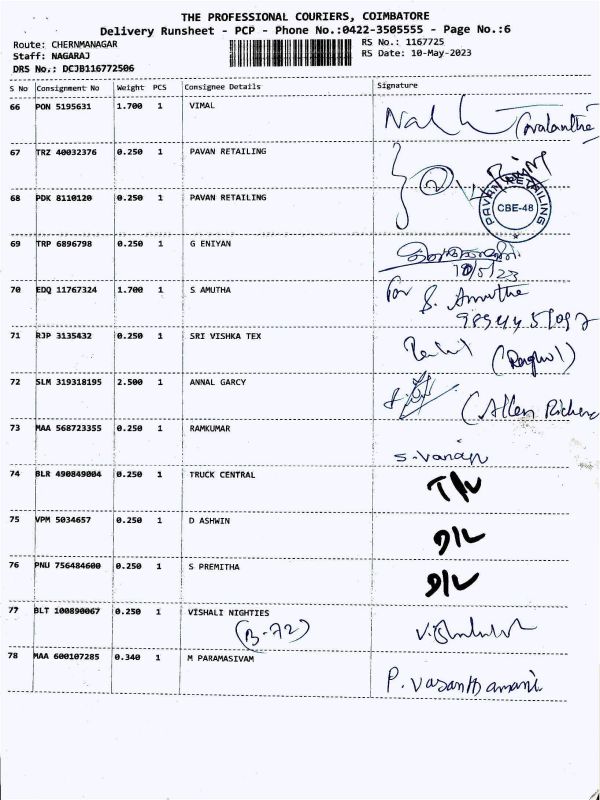 THE PROFESSIONAL COURIERS, COIMBATORE
Delivery Runsheet - PCP - Phone No.:0422-3505555 - Page No.:6
Route: CHERNMANAGAR RS No.: 1167725
Staff: NAGARAJ RS Date: 10-May-2023
DRS No.: DCJB116772506
S No Consignment No Weight PCS Consignee Details Signature
66 PON 5195631 1.700 1 VIMAL
67 TRZ 40032376 0.250 1 PAVAN RETAILING
68 PDK 8110120 0.250 1 PAVAN RETAILING
PAVAN RETAILING
CBE-48
69 TRP 6896798 0.250 1 G ENIYAN
10/5/23
70 EDQ 11767324 1.700 1 S AMUTHA for S. Amutha
71 RJP 3135432 0.250 1 SRI VISHKA TEX
72 SLM 319318195 2.500 1 ANNAL GARCY (Allen Richard
73 MAA 568723355 0.250 1 RAMKUMAR
S. Vanaja
74 BLR 490849004 0.250 1 TRUCK CENTRAL
75 VPM 5034657 0.250 1 D ASHWIN D/L
76 PNU 756484600 0.250 1 S PREMITHA D/L
77 BLT 100890067 0.250 1 VISHALI NIGHTIES
(B-72)
78 MAA 600107285 0.340 1 M PARAMASIVAM
P. Vasanthamani